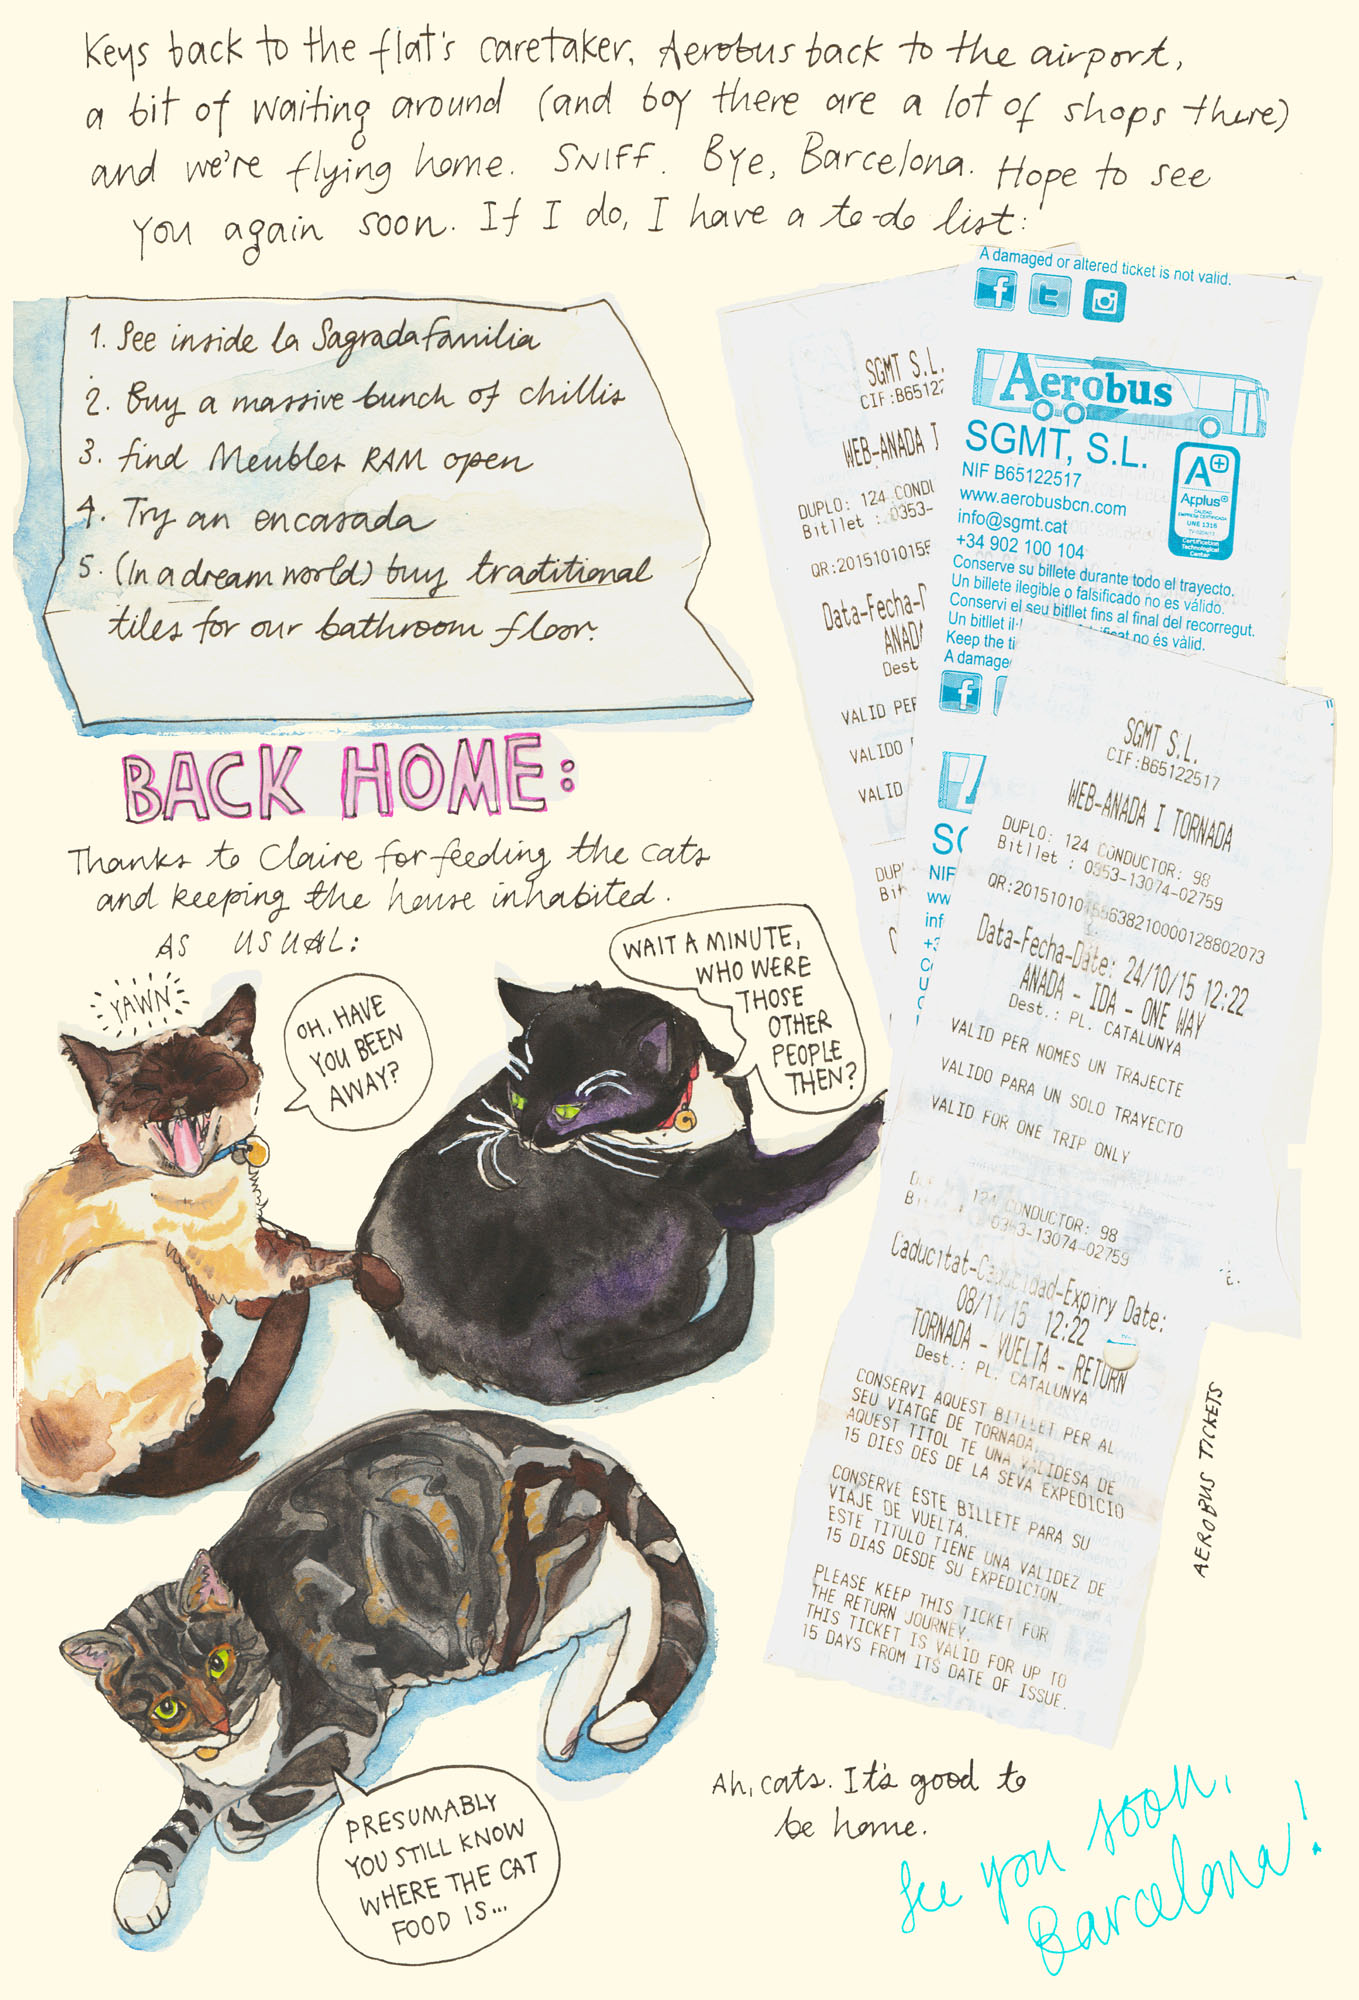 Keys back to the flat's caretaker, Aerobus back to the airport,
a bit of waiting around (and boy there are a lot of shops there)
and we're flying home. SNIFF. Bye, Barcelona. Hope to see
you again soon. If I do, I have a to-do list:
1. See inside la Sagrada Familia
2. Buy a massive bunch of chillis
3. find Meubles RAM open
4. Try an encasada
5. (In a dream world) buy traditional
tiles for our bathroom floor.
BACK HOME:
Thanks to Claire for feeding the cats
and keeping the house inhabited.
AS USUAL:
YAWN
OH, HAVE
YOU BEEN
AWAY?
WAIT A MINUTE,
WHO WERE
THOSE
OTHER
PEOPLE
THEN?
PRESUMABLY
YOU STILL KNOW
WHERE THE CAT
FOOD IS...
SGMT S.L.
CIF:B6512
WEB-ANADA I
DUPLO: 124 CONDU
Bitllet : 0353-
QR:2015101015
Data-Fecha-
ANAD
Dest
VALID PER
VALIDO
VALID
DUP
Bi
A damaged or altered ticket is not valid.
Aerobus
SGMT, S.L.
NIF B65122517
www.aerobusbcn.com
info@sgmt.cat
+34 902 100 104
A+
Applus+
CALIDAD
UNE 1316
Certification
Technological
Center
Conserve su billete durante todo el trayecto.
Un billete ilegible o falsificado no es válido.
Conservi el seu bitllet fins al final del recorregut.
Un bitllet il· no és vàlid.
Keep the ti
A damage
SG
NIF
ww
inf
+3
SGMT S.L.
CIF:B65122517
WEB-ANADA I TORNADA
DUPLO: 124 CONDUCTOR: 98
Bitllet : 0353-13074-02759
Data-Fecha-Date: 24/10/15 12:22
ANADA - IDA - ONE WAY
Dest.: PL. CATALUNYA
VALID PER NOMES UN TRAJECTE
VALIDO PARA UN SOLO TRAYECTO
VALID FOR ONE TRIP ONLY
124 CONDUCTOR: 98
0353-13074-02759
Caducitat-Caducidad-Expiry Date:
08/11/15 12:22
TORNADA - VUELTA - RETURN
Dest.: PL. CATALUNYA
CONSERVI AQUEST BITLLET PER AL
SEU VIATGE DE TORNADA.
AQUEST TITOL TE UNA VALIDESA DE
15 DIES DES DE LA SEVA EXPEDICIO
CONSERVE ESTE BILLETE PARA SU
VIAJE DE VUELTA.
ESTE TITULO TIENE UNA VALIDEZ DE
15 DIAS DESDE SU EXPEDICION.
PLEASE KEEP THIS TICKET FOR
THE RETURN JOURNEY.
THIS TICKET IS VALID FOR UP TO
15 DAYS FROM ITS DATE OF ISSUE.
AEROBUS TICKETS
Ah, cats. It's good to
be home.
See you soon,
Barcelona!